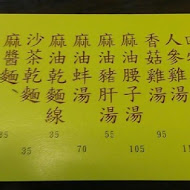 麻醬麵
沙茶乾麵
麻油乾麵線
麻油蚌湯
麻油豬肝湯
麻油腰子湯
香菇雞湯
人參雞湯
35
35
55
35
70
105